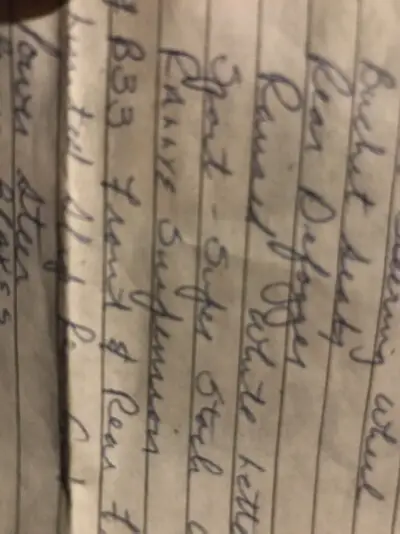 Steering Wheel
Bucket Seats
Rear Defogger
Raised White Lette
Sport - Super Stock
Rallye Suspension
B33 Front & Rear
Limited Slip
Power Steer
Brakes